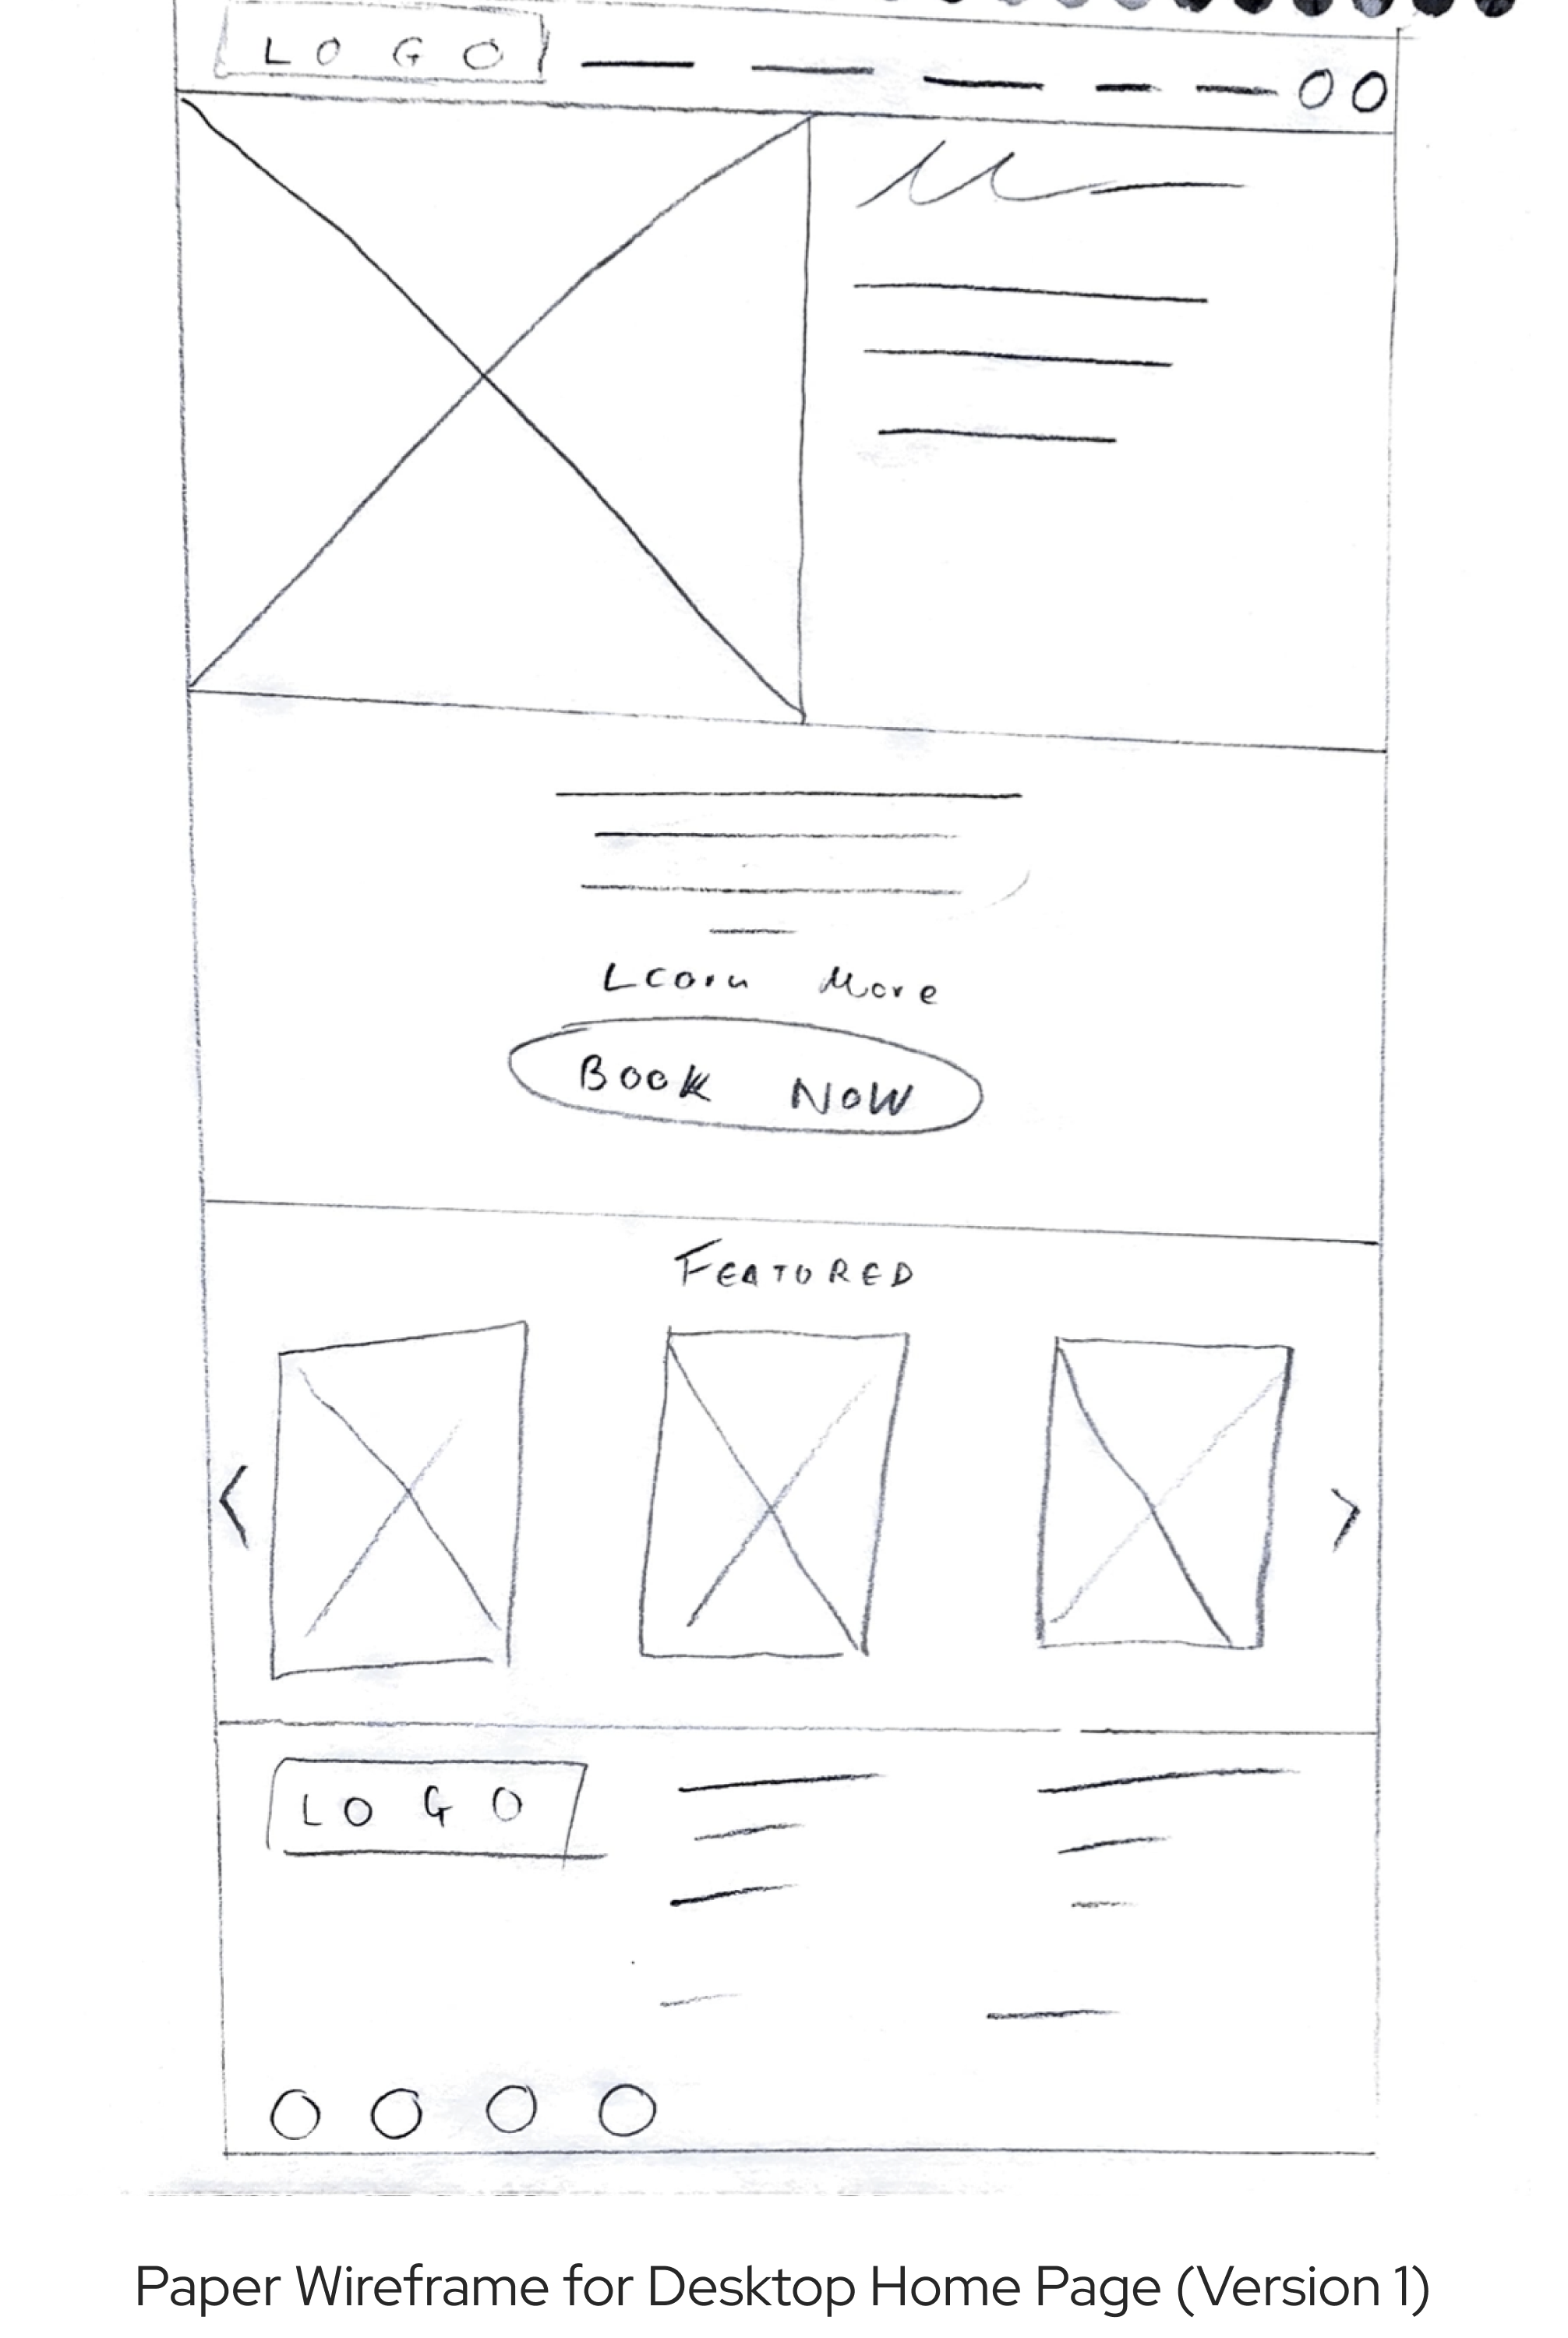 LOGO
Learn More
BOOK NOW
FEATURED
LOGO
Paper Wireframe for Desktop Home Page (Version 1)